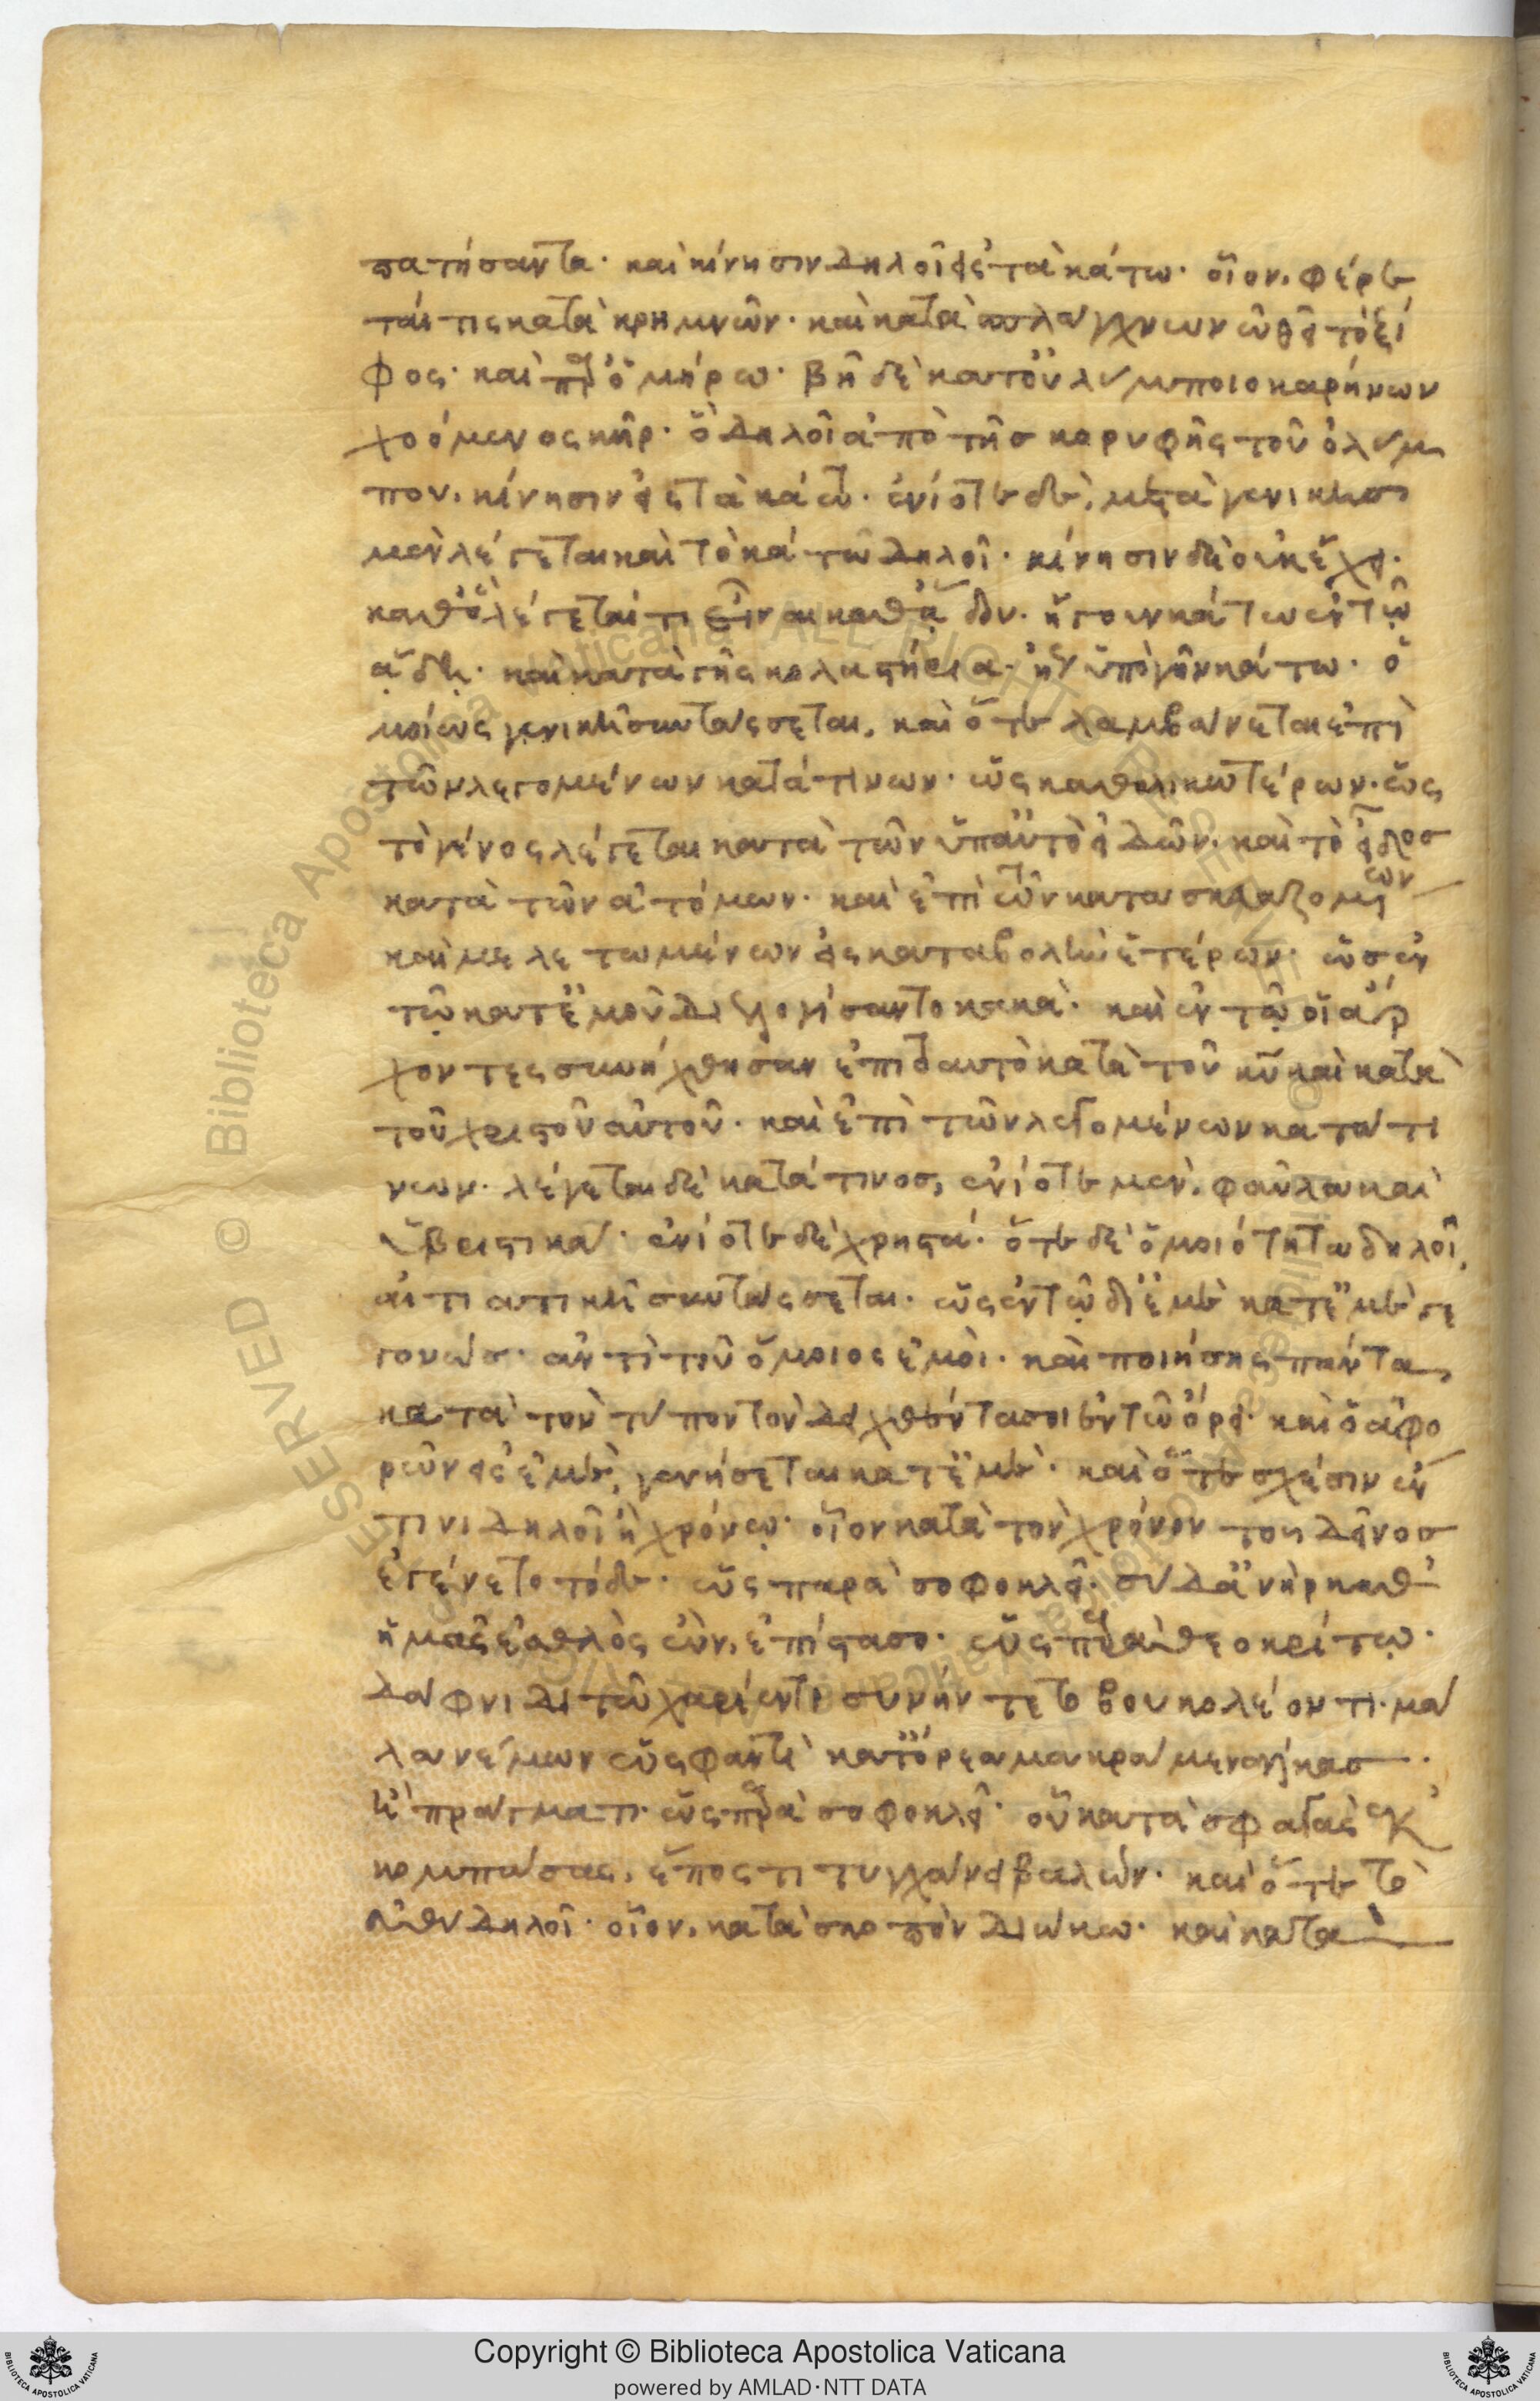 πατήσαντα· καὶ κίνησιν δηλοῖ εἰς τὰ κάτω· οἷον, φέρε
ταί τις κατὰ κρημνῶν· καὶ κατὰ σπλάγχνων ὠθεῖ τὸ ξί
φος· καὶ παρ' ὁμήρω· βῆ δὲ κατ' οὐλύμποιο καρήνων
χοόμενος κῆρ· ὃ δηλοῖ ἀπὸ τῆς κορυφῆς τοῦ ὀλύμ
που, κίνησιν εἰς τὰ κάτω· ἐνίοτε δὲ, μετὰ γενικῆς
μὲν λέγεται καὶ τὸ κάτω δηλοῖ· κίνησιν δὲ οὐκ ἔχει·
καθὸ λέγεταί τι εἶναι καθ' ᾅδου· ἤγουν κάτω ἐν τῷ
ᾅδῃ· καὶ κατὰ γῆς κολαστήρια· ἤγουν ὑπὸ γῆν κάτω· ὁ
μοίως γενικῆ συντάσσεται, καὶ ὅτε λαμβάνεται ἐπὶ
τῶν λεγομένων κατά τινων· ὡς καθολικωτέρων· ὡς
τὸ γένος λέγεται κατὰ τῶν ὑπ' αὐτὸ εἰδῶν· καὶ τὸ εἶδος
κατὰ τῶν ἀτόμων· καὶ ἐπὶ τῶν κατασκευαζομένων
καὶ μελετωμένων εἰς καταβολὴν ἑτέρων· ὡς ἐν
τῷ κατ' ἐμοῦ διελογίσαντο κακὰ· καὶ ἐν τῷ οἱ ἄρ
χοντες συνήχθησαν ἐπιτοαυτὸ κατὰ τοῦ κυ καὶ κατὰ
τοῦ χριστοῦ αὐτοῦ· καὶ ἐπὶ τῶν λεγομένων κατά τι
νων· λέγεται δὲ κατά τινος, ἐνίοτε μὲν, φαῦλα καὶ
ὑβριστικά· ἐνίοτε δὲ χρηστά· ὅτε δὲ ὁμοιότητα δηλοῖ,
αἰτιατικῆ συντάσσεται· ὡς ἐν τῷ δι' ἐμὲ κατ' ἐμὲ γε
γονώς· ἀντὶ τοῦ ὅμοιος ἐμοὶ· καὶ ποιήσης πάντα
κατὰ τὸν τύπον τὸν δειχθέντα σοι ἐν τῶ ὄρει· καὶ ὁ ἀφο
ρῶν εἰς ἐμὲ, γενήσεται κατ' ἐμὲ· καὶ ὅτε σχέσιν ἐν
τινι δηλοῖ ἢ χρόνῳ· οἷον κατὰ τὸν χρόνον τοῦ δεῖνος
ἐγένετο τόδε· ὡς παρὰ σοφοκλεῖ· σὺ δ' ἀνὴρ καθ'
ἡμᾶς ἐσθλὸς ὢν, ἐπίστασο· ὡς παρὰ θεοκρίτῳ·
δάφνιδι τῶ χαρίεντι συνήντετο βουκολέοντι· μᾶ
λα νέμων ὡς φαντὶ κατ' ὄρεα μακρὰ μενάλκας·
ἢ πράγματι· ὡς παρὰ σοφοκλεῖ· οὐ κατὰ σφαγὰς ἐκ
κομπάσας, ἔπος τι τυγχάνει βαλών· καὶ ὅτε τὸ
εὐθὺ δηλοῖ· οἷον, κατὰ σκοπὸν διώκω· καὶ κατὰ
Copyright © Biblioteca Apostolica Vaticana
powered by AMLAD·NTT DATA